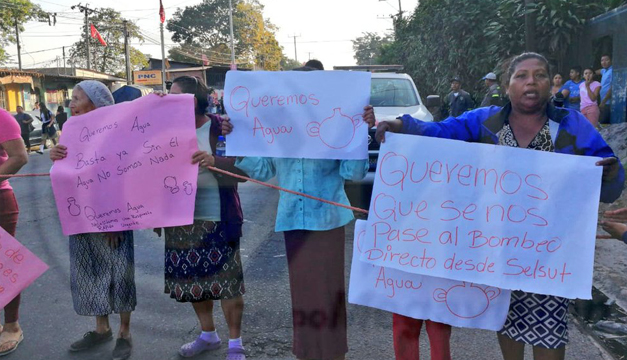 PNC
Queremos Agua
Basta ya Sen El
Agua No Somos Nada
Queremos Agua
Queremos
Agua
Queremos
Que se nos
Pase al Bombeo
Directo desde Selsut
Agua